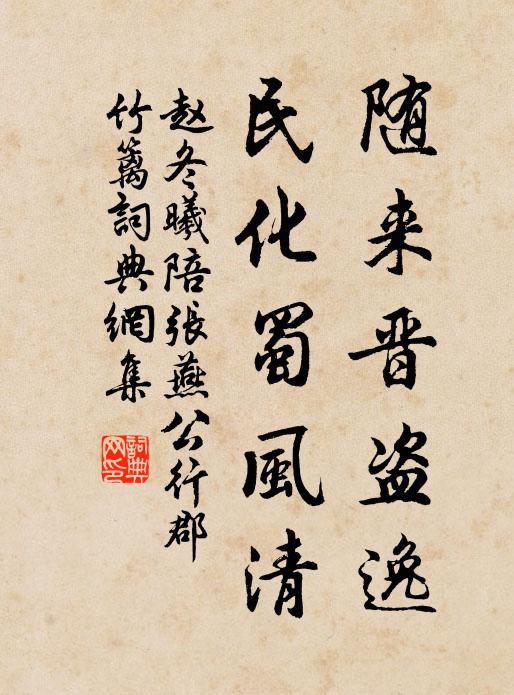 随来晋盗逸
民化蜀風清
赵冬曦陪張燕公行郡
竹篱詞典網集
詞典网印